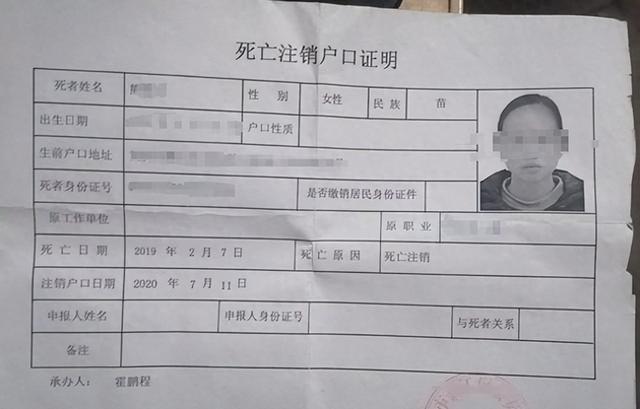 死亡注销户口证明
死者姓名 性别 女性 民族 苗
出生日期 户口性质
生前户口地址
死者身份证号 是否缴销居民身份证件
原工作单位 原职业
死亡日期 2019 年 2 月 7 日 死亡原因 死亡注销
注销户口日期 2020 年 7 月 11 日
申报人姓名 申报人身份证号 与死者关系
备注
承办人: 霍鹏程